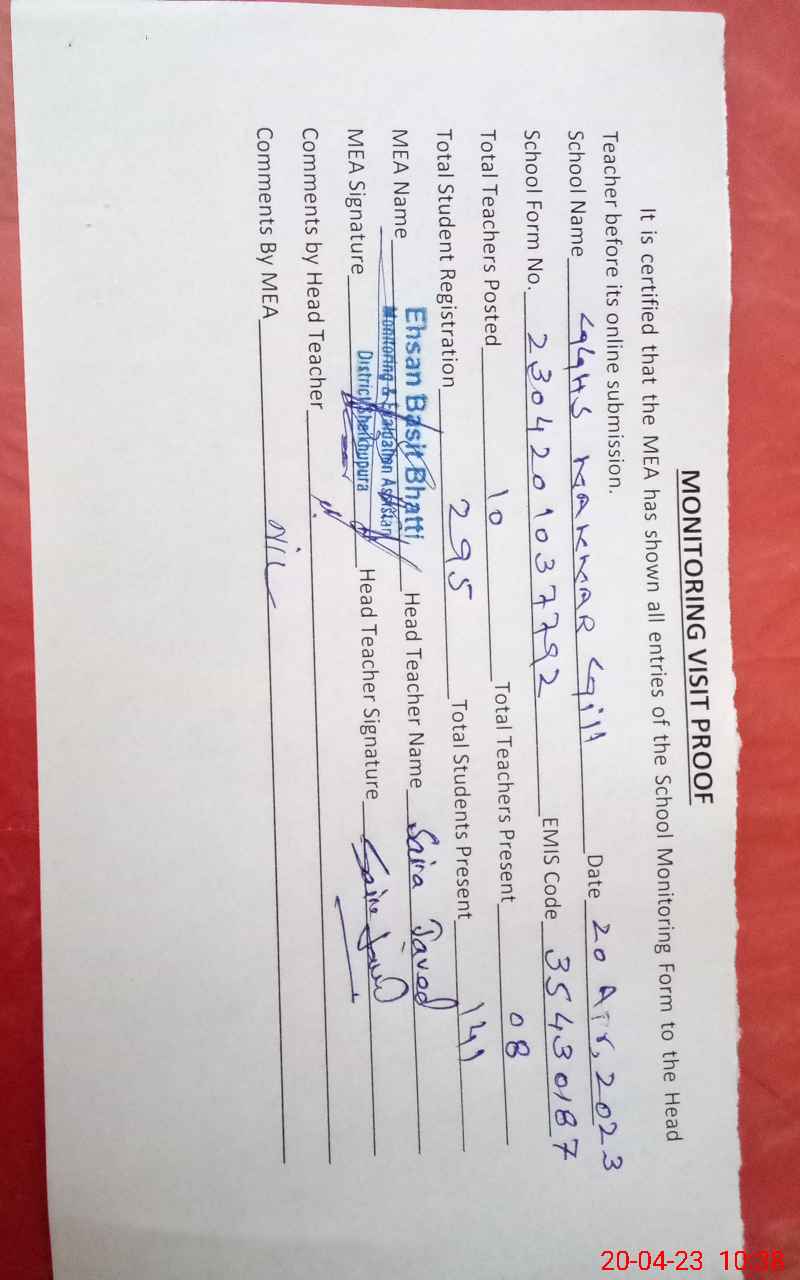 MONITORING VISIT PROOF
It is certified that the MEA has shown all entries of the School Monitoring Form to the Head
Teacher before its online submission.
School Name GGHS MARMAR Gill Date 20 Apr, 2023
School Form No. 2304201037792 EMIS Code 35430187
Total Teachers Posted 10 Total Teachers Present 08
Total Student Registration 295 Total Students Present 141
MEA Name Ehsan Basit Bhatti Head Teacher Name Saira Javed
Monitoring & Evaluation Assistant
District Sheikhupura
MEA Signature Head Teacher Signature
Comments by Head Teacher
Comments By MEA Nil
20-04-23 10:38